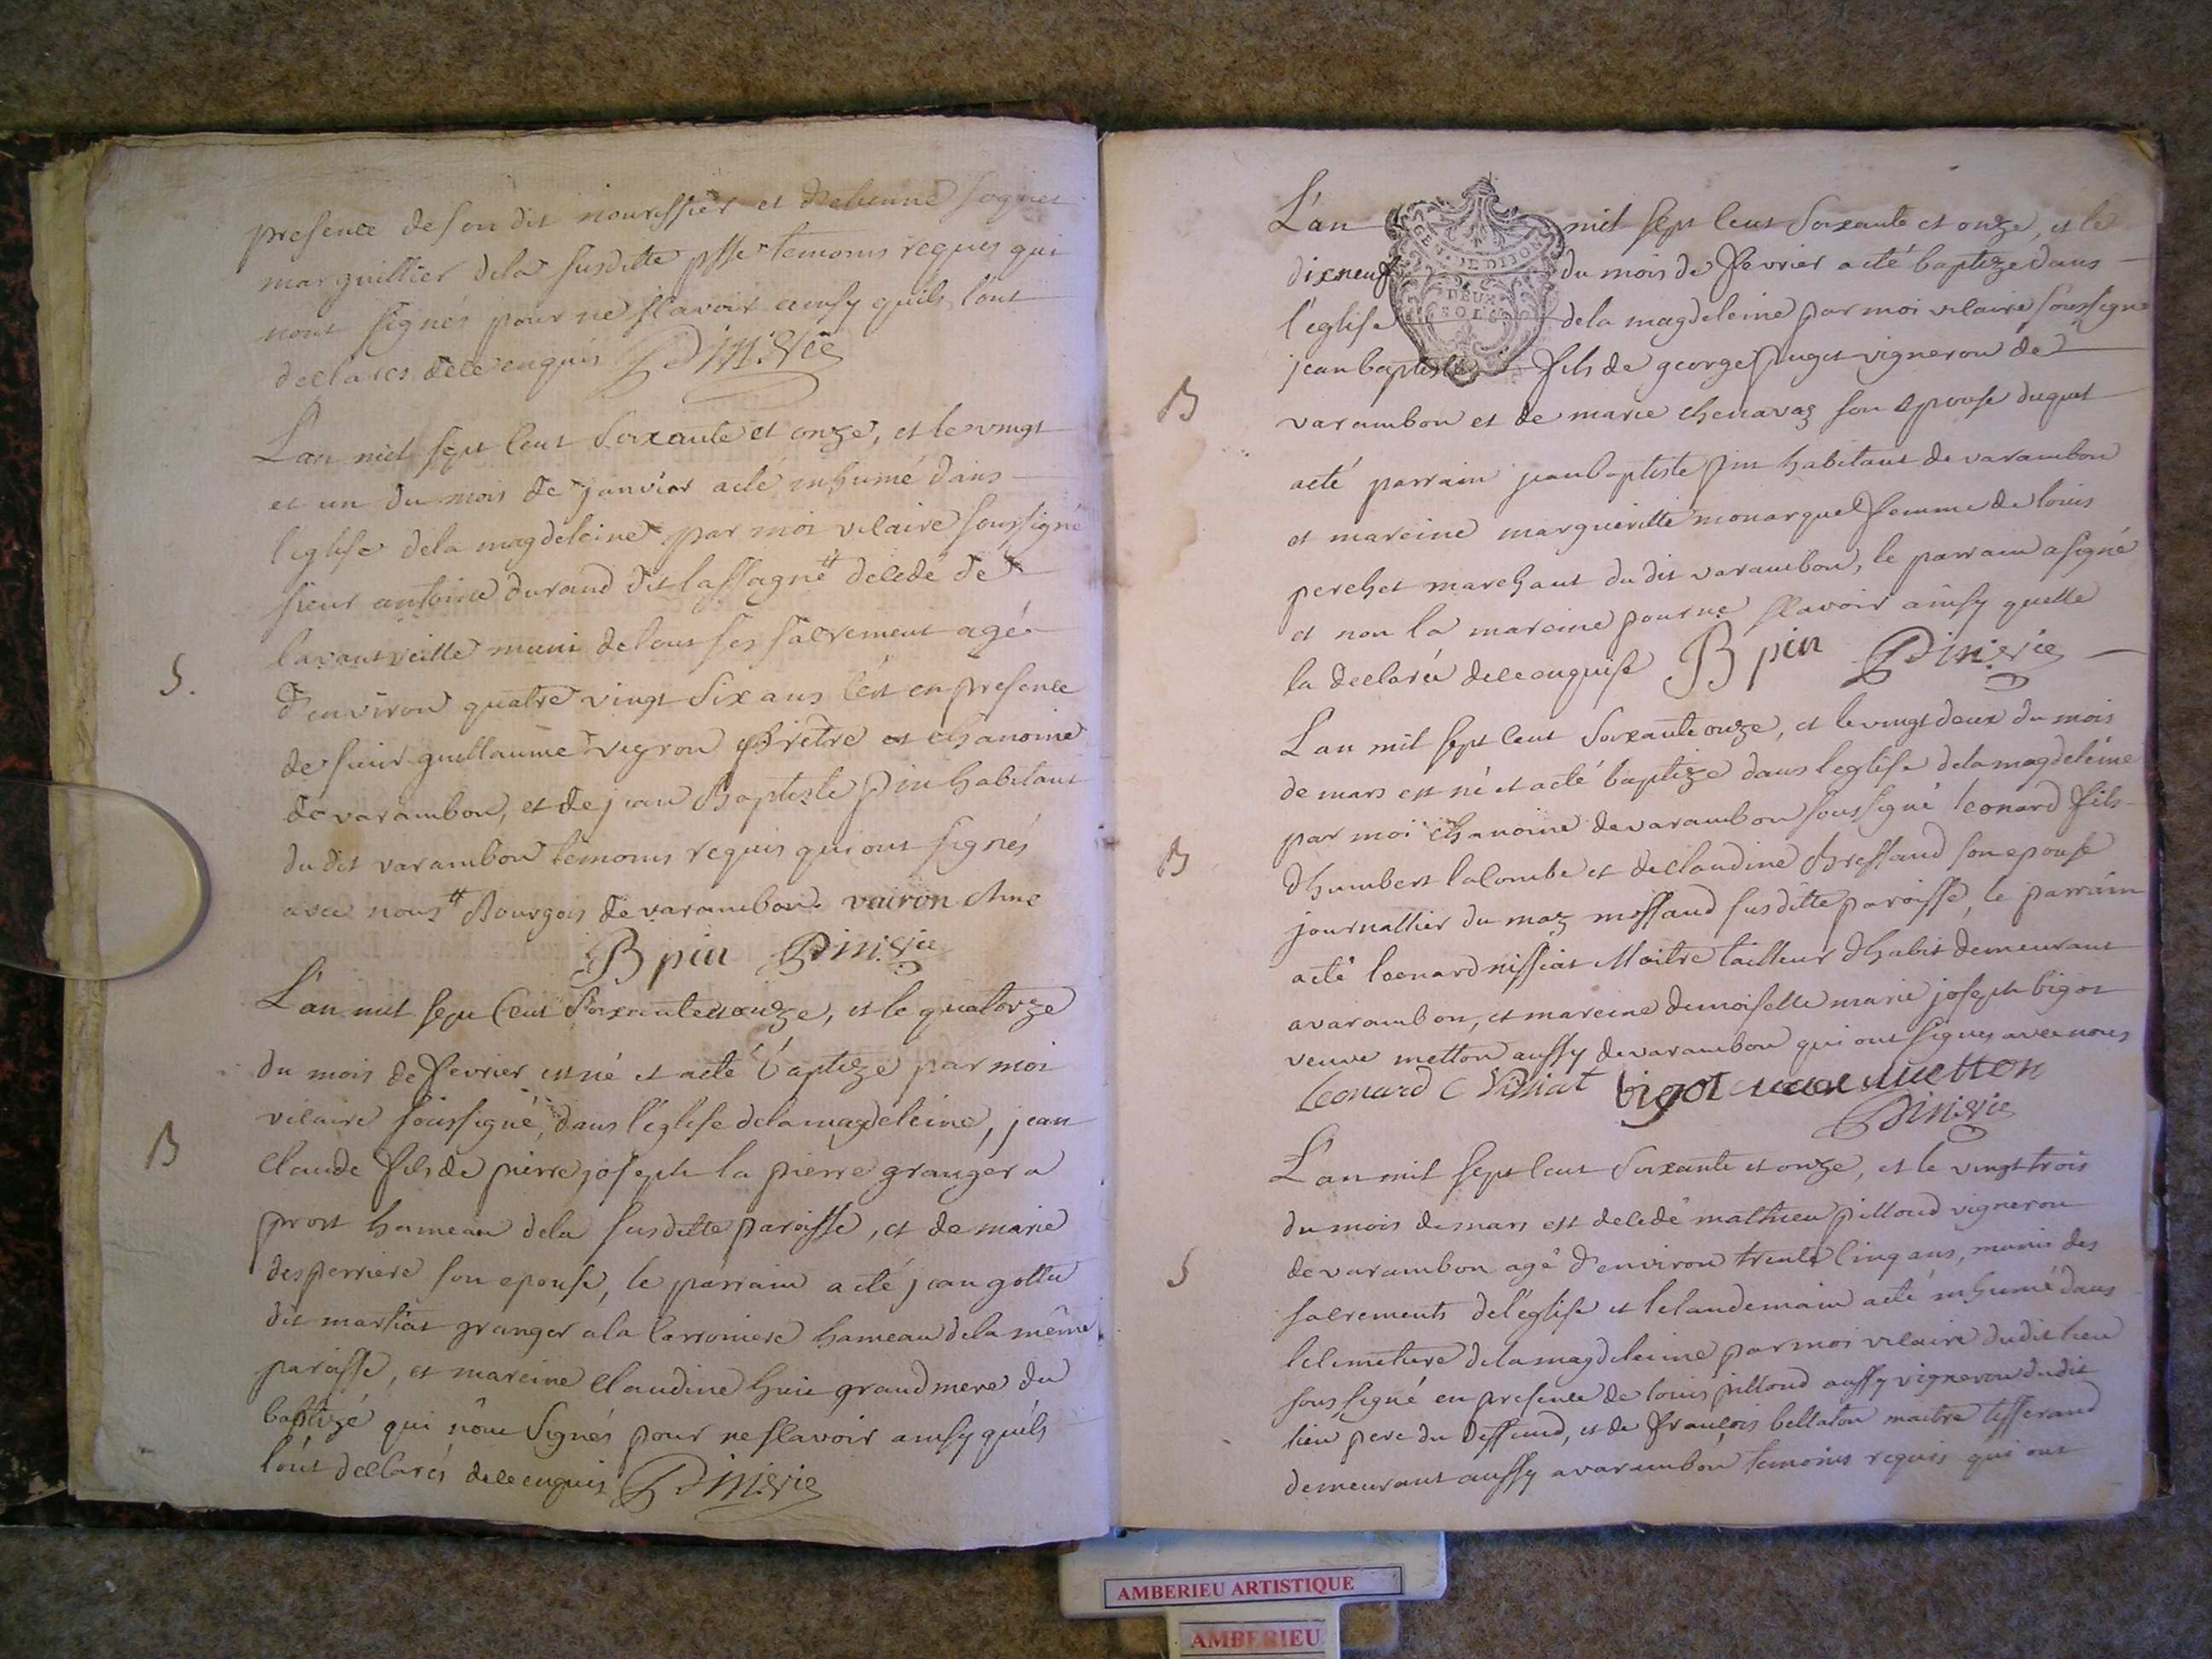 presence de son dit nourissier et detienne
marguillier dela susditte psse temoins requis qui
nont signés pour ne scavoir ainsy quils lont
declarés dece enquis
L'an mil sept cent soixante et onze, et le vingt
et un du mois de janvier a eté inhumé dans
leglise dela magdeleine par moi vicaire soussigné
sieur antoine durand dit lassagne # decedé de
lavant veille muni de tout ses sacrement agé
d'environ quatre vingt six ans c'est en presence
de sieur guillaume veyron prêtre et chanoine
de varambon, et de jean Baptiste pin habitant
du dit varambon temoins requis qui ont signés
avec nous # Bourgois de varambon. vairon chne
B pin
L'an mil sept cent soixante et onze, et le quatorze
du mois de fevrier est né et a eté baptizé par moi
vicaire soussigné, dans l'église dela magdeleine, jean
claude fils de pierre joseph la pierre granger a
prost hameau dela susditte paroisse, et de marie
desperriere son epouse, le parrain a eté jean gottu
dit martiat granger a la hameau dela même
paroisse, et mareine claudine huie grand mere du
baptizé qui nônt signés pour ne scavoir ainsy quils
lónt declarés dece enquis
B
S.
L'an mil sept cent soixante et onze, et le
dixneuf du mois de fevrier a eté baptize dans
l'eglise dela magdeleine par moi vicaire soussigné
DE DIJON
DEUX SOLS
jean baptiste fils de george puget vigneron de
varambon et de marie chenavaz son epouse duquel
a eté parrain jean baptiste pin habitant de varambon
et mareine margueritte monarque femme de louis
perchet marchant du dit varambon, le parrain a signé
et non la mareine pour ne scavoir ainsy quelle
la declaréé dece enquise B pin
L'an mil sept cent soixante onze, et le vingt deux du mois
de mars est né et a eté baptize dans leglise dela magdeleine
par moi chanoine de varambon soussigné leonard fils
dhumbert lacombe et de claudine bressand son epouse
journallier du maz mossand susditte paroisse, le parrain
a eté leonard nissiat Maitre tailleur dhabit demeurant
a varambon, et mareine demoiselle marie joseph bigot
veuve metton aussy de varambon qui ont signés avec nous
leonard Nissiat bigot veuve metton
L'an mil sept cent soixante et onze, et le vingt trois
du mois de mars est decedé mathieu pilloud vigneron
de varambon agé d'environ trente cinq ans, muni des
sacrements de l'église et le landemain a eté inhumé dans
le cimetiere dela magdeleine par moi vicaire dudit lieu
soussigné en presence de louis pilloud aussy vigneron dudit
lieu pere du deffund, et de françois bellaton maitre tisserand
demeurant aussy a varambon temoins requis qui ont
B
B
S
AMBERIEU ARTISTIQUE
AMBERIEU